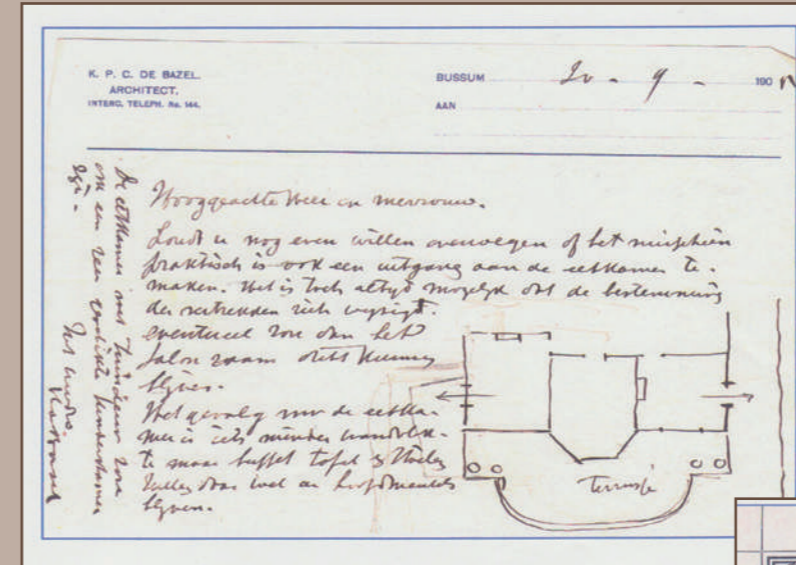 K. P. C. DE BAZEL.
ARCHITECT.
INTERC. TELEPH. No. 144.
BUSSUM 20 - 9 - 190
AAN
Hooggeachte Heer en mevrouw.
Zoudt u nog even willen overwegen of het misschien
praktisch is ook een uitgang aan de eetkamer te
maken. Het is toch altijd mogelyk dat de bestemming
der vertrekken zich wyzigt.
eventueel zou dan het
Salon raam dicht kunnen
blyven.
Het gevolg voor de eetka-
mer is iets minder
te maar buffet tafel & stoelen
zullen daar wel en
blyven.
Terrasje
De eetkamer met Tuindeur zou
om een zeer kinderkamer
zyn.